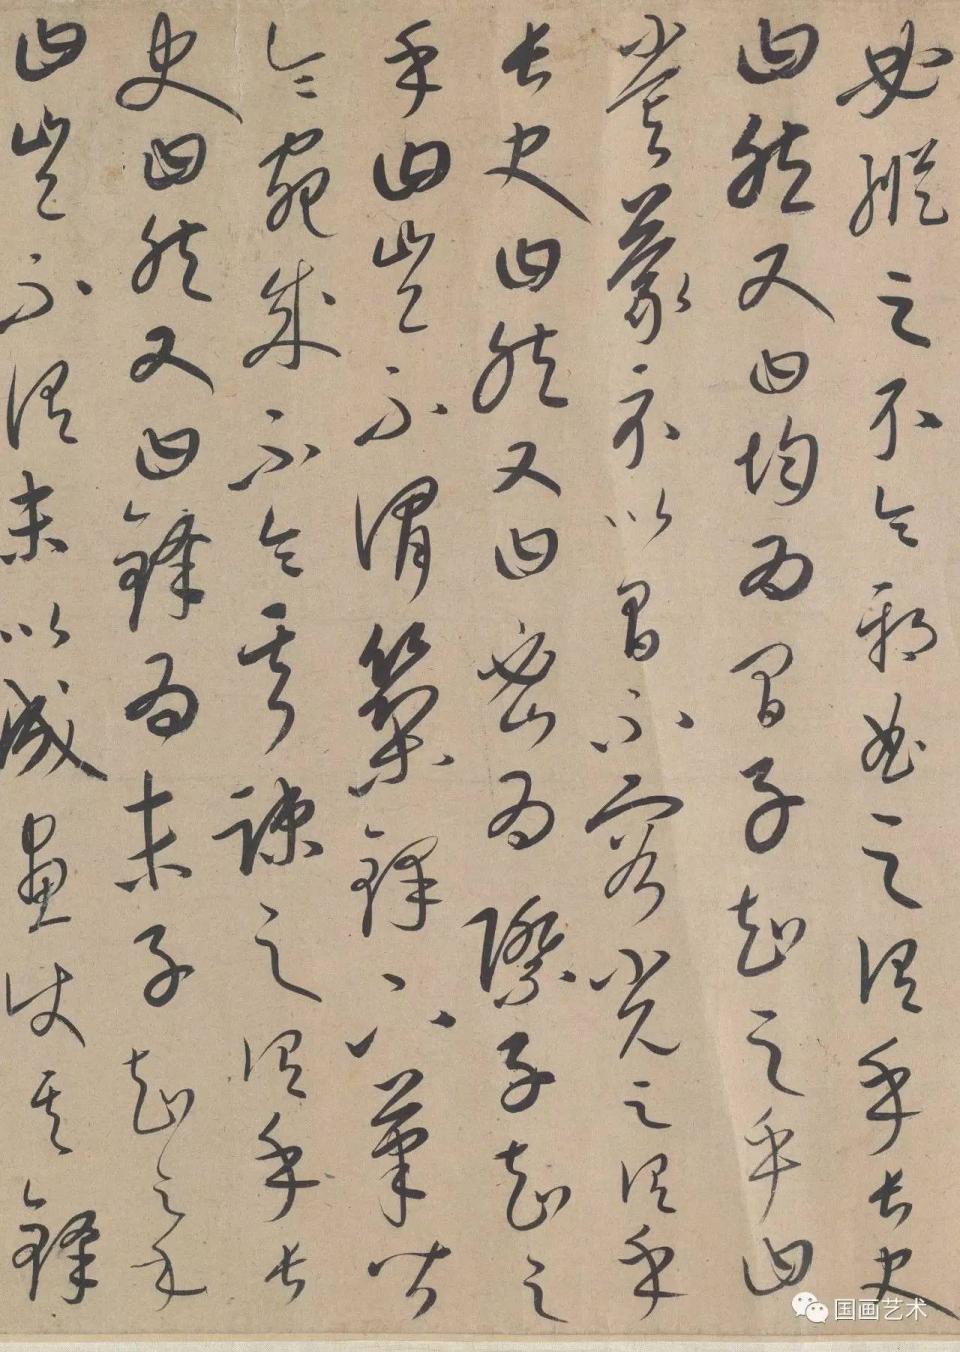 必縱之不令邪曲之謂乎長史
曰然又曰均為間子知之乎曰
嘗蒙示以間不容光之謂乎
長史曰然又曰密為際子知之
乎曰豈不謂築鋒下筆皆
令宛成不令其疎之謂乎長
史曰然又曰鋒為末子知之乎
曰豈不謂末以成畫使其鋒
国画艺术